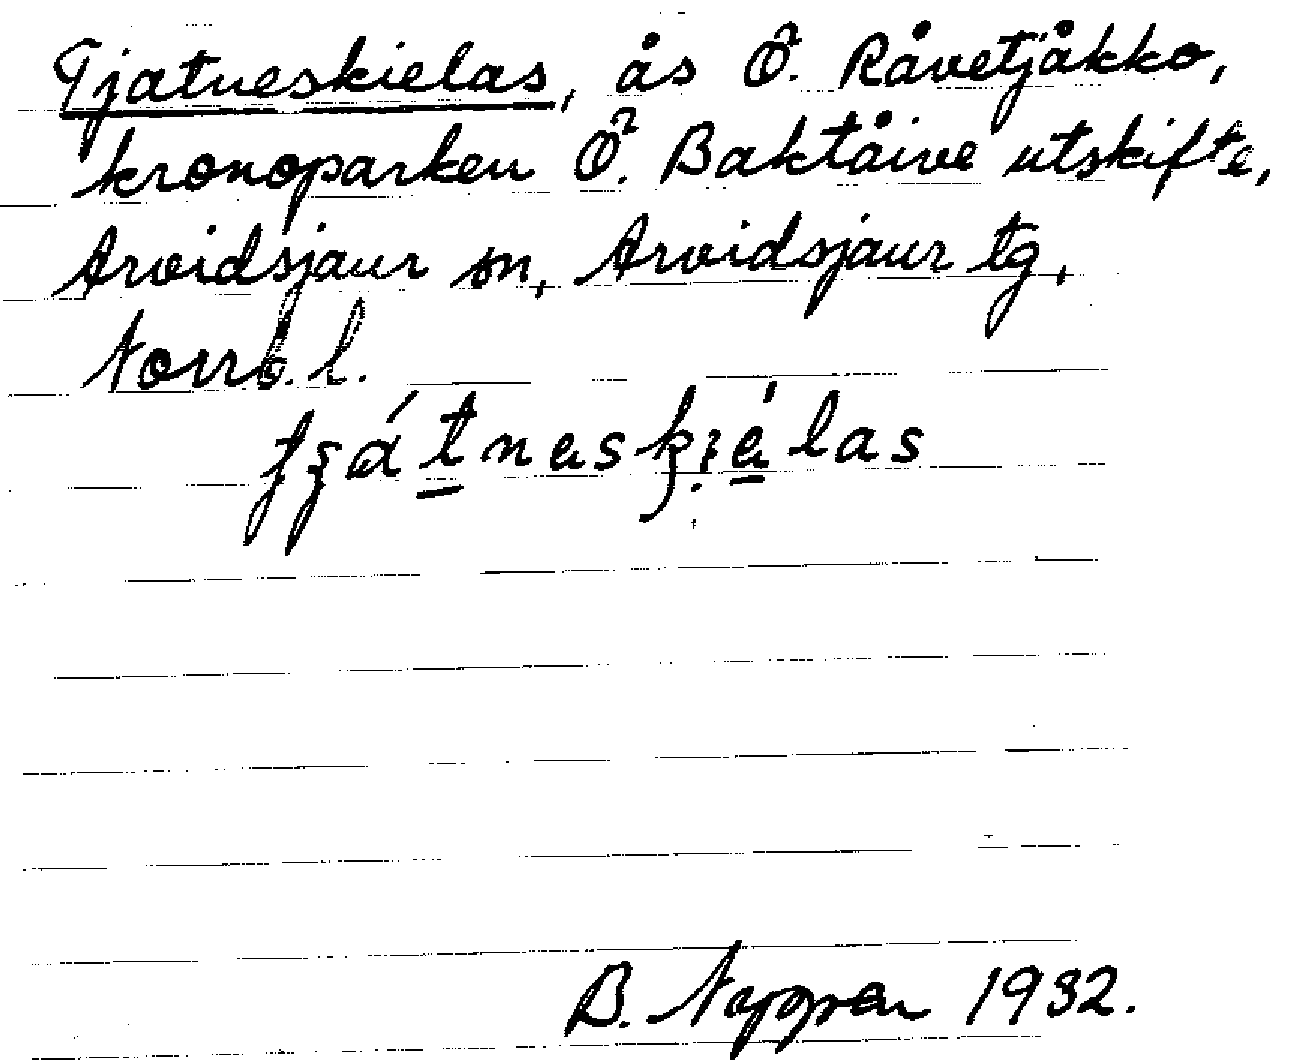 Tjatneskielas, ås Ö. Råvetjåkko,
kronoparken Ö. Baktåive utskifte,
Arvidsjaur sn, Arvidsjaur tg,
Norrb. l.
B. 1932.